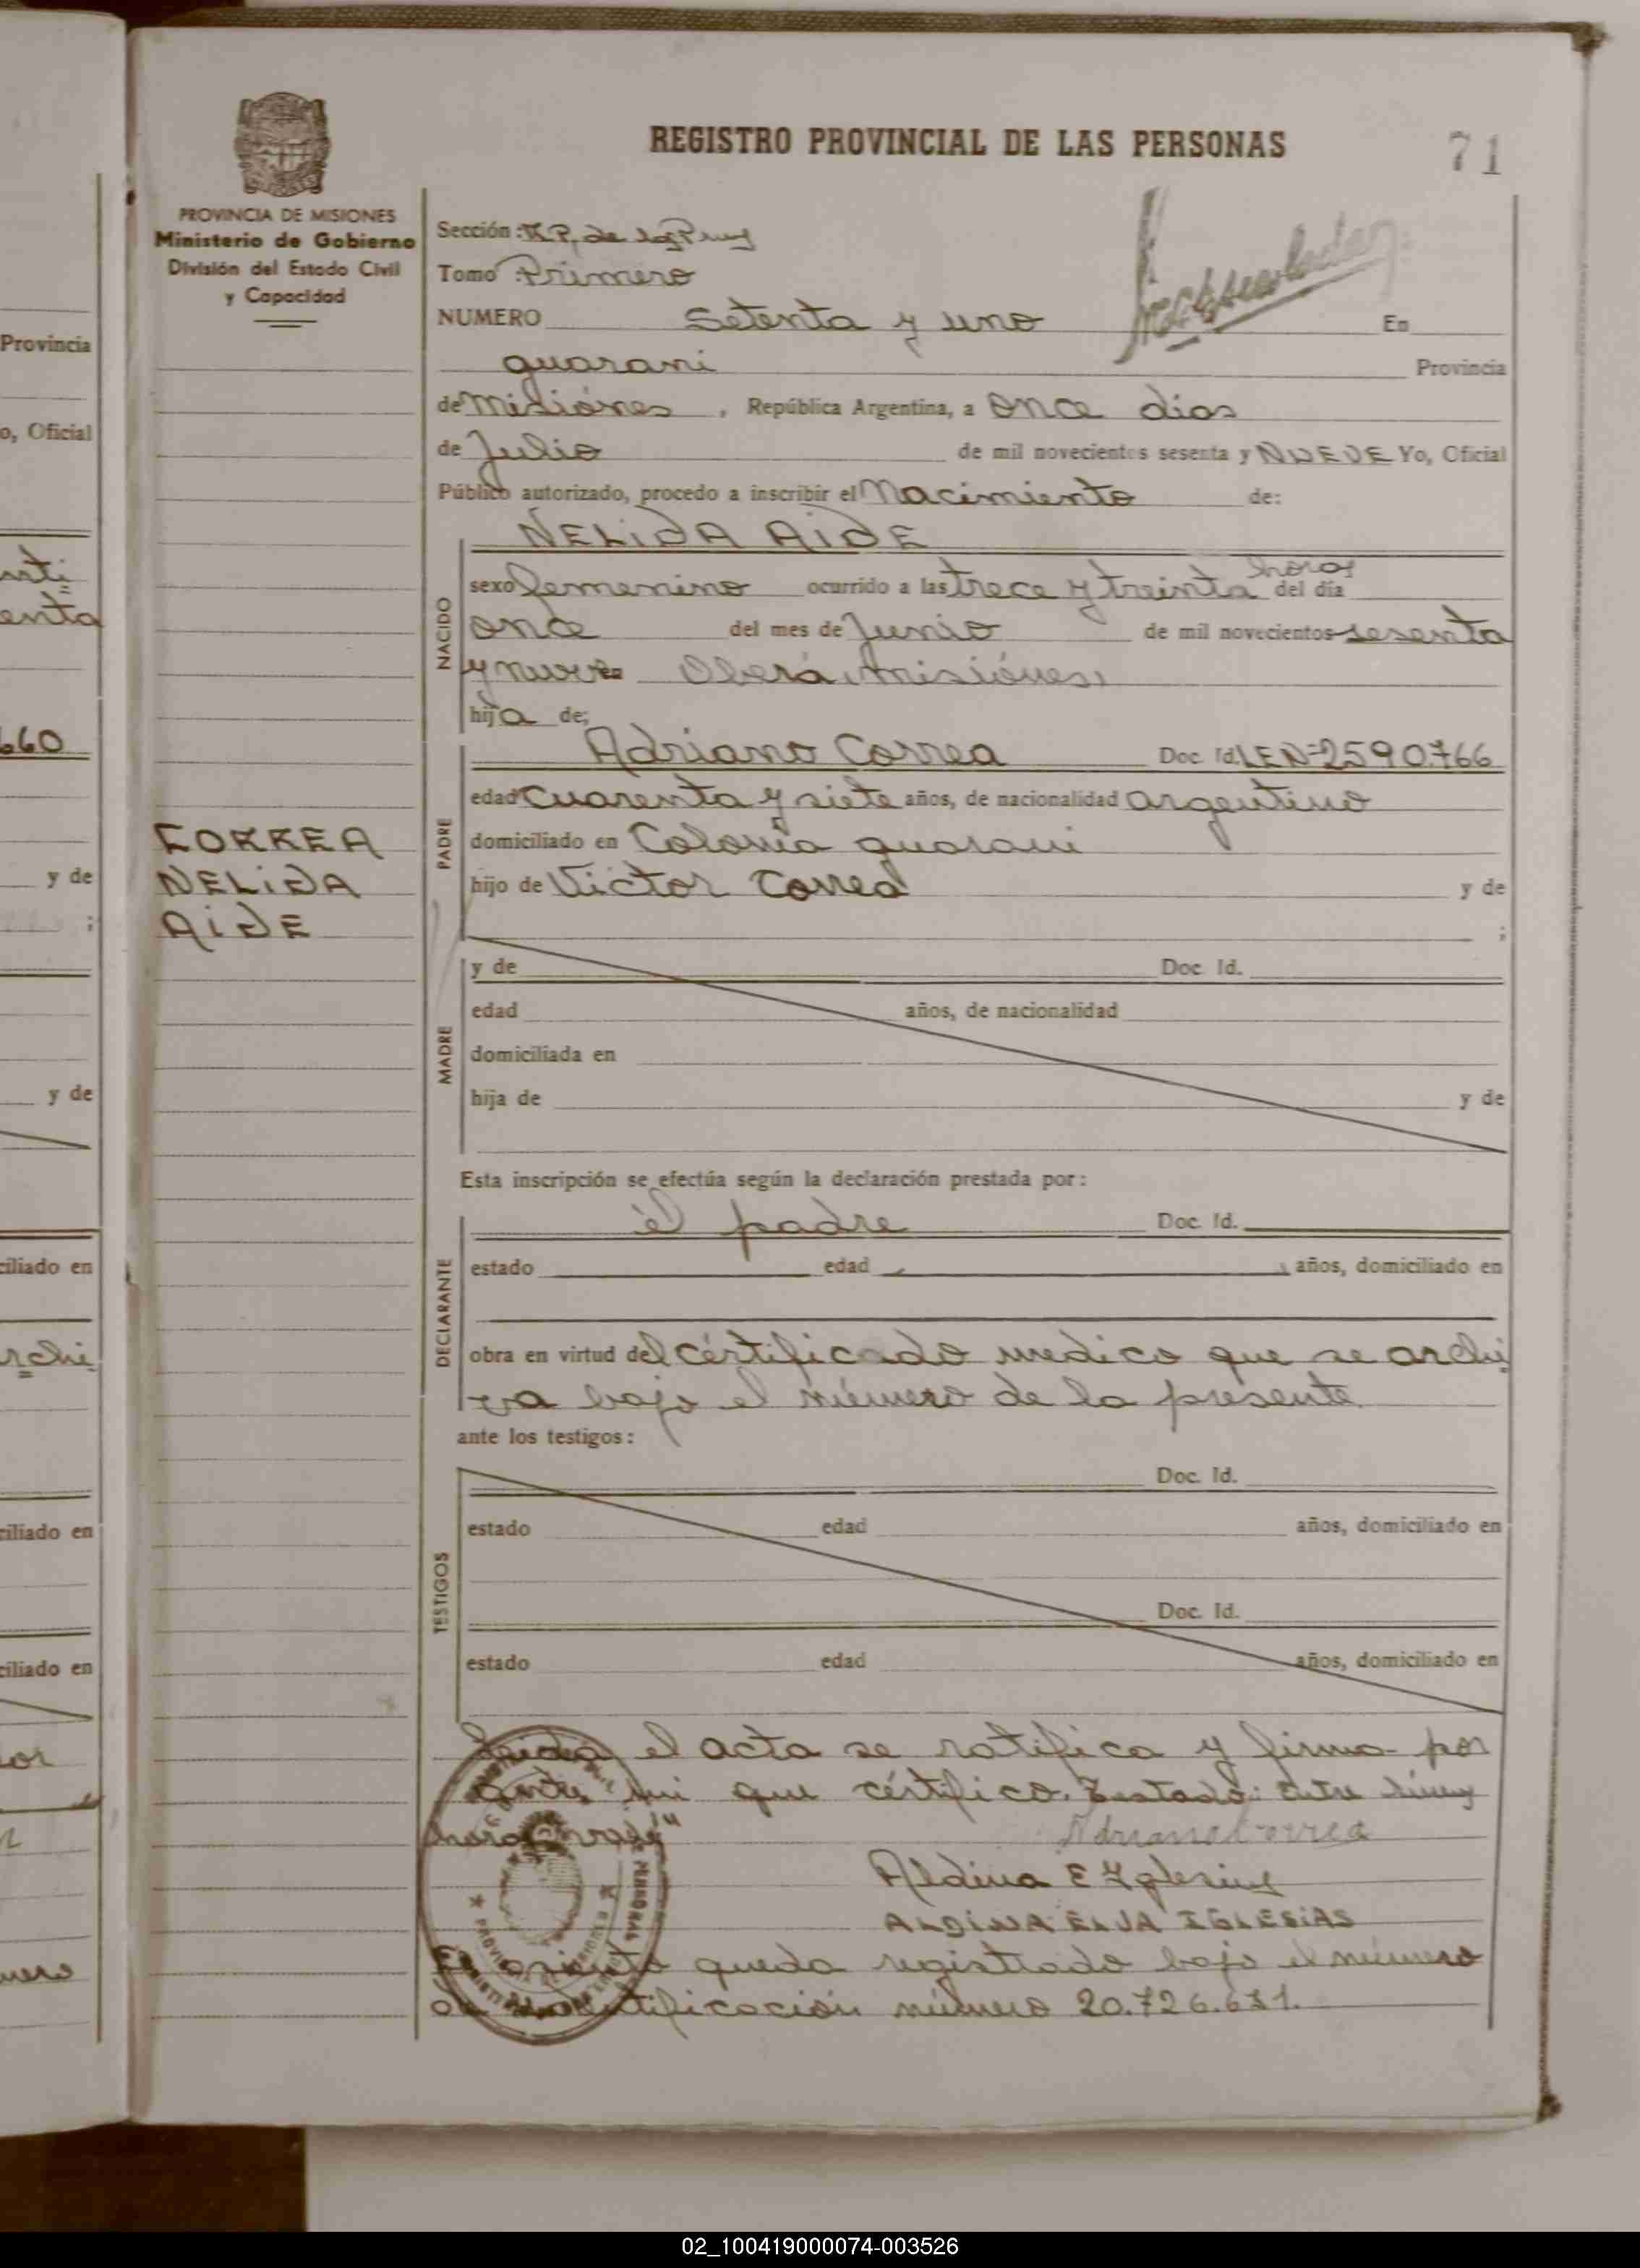 REGISTRO PROVINCIAL DE LAS PERSONAS
71
PROVINCIA DE MISIONES
Ministerio de Gobierno
División del Estado Civil
y Capacidad
Sección: R.P. de las
Tomo Primero
NUMERO Setenta y uno En
guarani Provincia
de misiónes, República Argentina, a once dias
de Julio de mil novecientos sesenta y NUEVE Yo, Oficial
Público autorizado, procedo a inscribir el Nacimiento de:
NELiDA AiDE
horas
NACIDO
sexo femenino ocurrido a las trece y treinta del día
once del mes de Junio de mil novecientos sesenta
y nueve Oberá, misiónes,
hija de;
PADRE
Adriano Correa Doc. Id. LEN=2590.766
edad cuarenta y siete años, de nacionalidad argentino
domiciliado en Colonia guarani
hijo de Victor Correa y de
;
CORREA
NELiDA
AiDE
MADRE
y de Doc. Id.
edad años, de nacionalidad
domiciliada en
hija de y de
Esta inscripción se efectúa según la declaración prestada por:
DECLARANTE
él padre Doc. Id.
estado edad años, domiciliado en
obra en virtud del cértificado medico que se archi
va bajo el número de la presente
ante los testigos:
TESTIGOS
Doc. Id.
estado edad años, domiciliado en
Doc. Id.
estado edad años, domiciliado en
el acta se ratifica y firma por
ante mi que cértifico. Testado: Entre
Adriano Correa
Aldina E Iglesias
ALDINA ELJA IGLESIAS
queda registrado bajo el número
número 20.726.631.
Provincia
o, Oficial
enta
660
y de
;
y de
ciliado en
rchi
ciliado en
ciliado en
or
mero
02_100419000074-003526